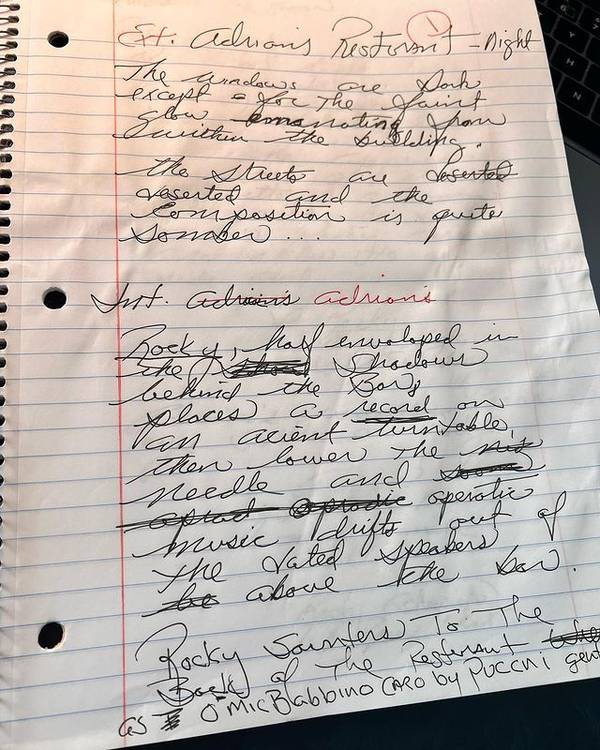 1
Ext. Adrians Resturant - Night
The windows are Dark
except - for The faint
glow emanating from
within the building.
The streets are deserted
deserted and the
Composition is quite
somber ...
Int. Adrian's Adrion's
Rocky, half enveloped in
the Shadows
behind the Bar,
places a record on
an acient turntable,
then lower the
needle and
operatic
music drifts out of
the dated speakers
above the bar.
Rocky Saunters To The
Back of The Resturant
as O'Mic Blabbino CARO by PUCCINI gent